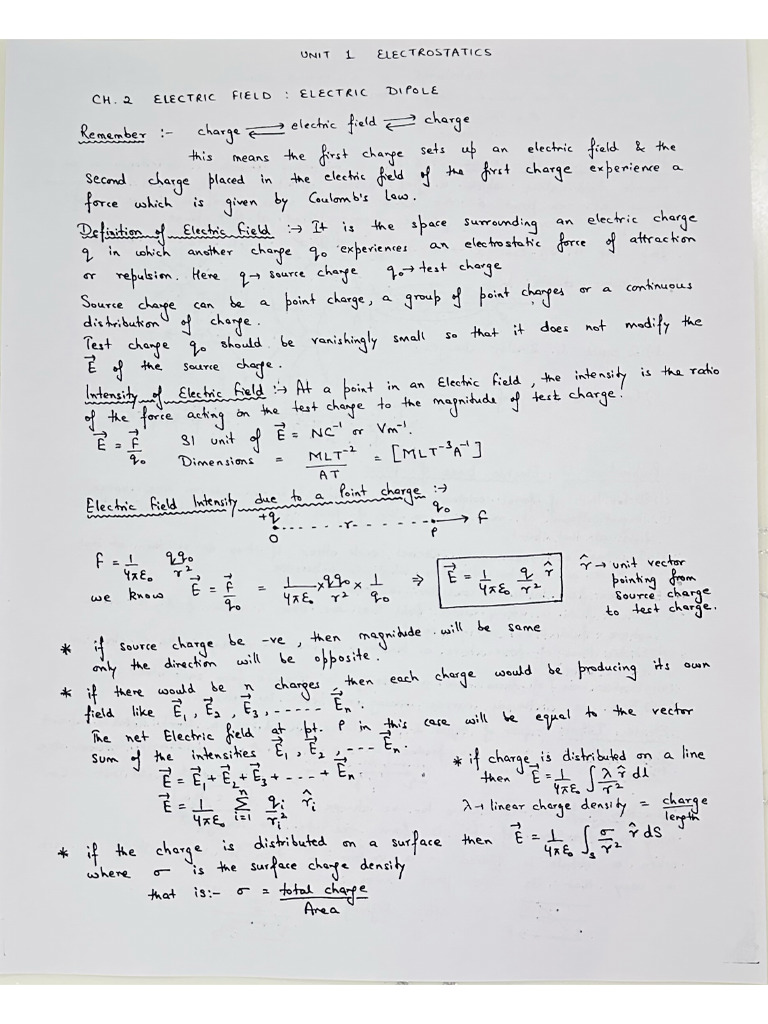 UNIT 1 ELECTROSTATICS
CH. 2 ELECTRIC FIELD : ELECTRIC DIPOLE
Remember :- charge ⇌ electric field ⇌ charge
this means the first charge sets up an electric field & the
second charge placed in the electric field of the first charge experience a
force which is given by Coulomb's Law.
Definition of Electric Field :→ It is the space surrounding an electric charge
q in which another charge q₀ experiences an electrostatic force of attraction
or repulsion. Here q → source charge q₀ → test charge
Source charge can be a point charge, a group of point charges or a continuous
distribution of charge.
Test charge q₀ should be vanishingly small so that it does not modify the
E⃗ of the source charge.
Intensity of Electric Field :→ At a point in an Electric field, the intensity is the ratio
of the force acting on the test charge to the magnitude of test charge.
E⃗ = F⃗/q₀ SI unit of E⃗ = NC⁻¹ or Vm⁻¹.
Dimensions = MLT⁻²/AT = [MLT⁻³A⁻¹]
Electric Field Intensity due to a Point charge :→
+q O - - - - r - - - - - P q₀ → F
F = 1/4πε₀ qq₀/r²
we know E⃗ = F⃗/q₀ = 1/4πε₀ × qq₀/r² × 1/q₀ ⇒ E⃗ = 1/4πε₀ q/r² r̂
r̂ → unit vector
pointing from
source charge
to test charge.
* if source charge be -ve, then magnitude will be same
only the direction will be opposite.
* if there would be n charges then each charge would be producing its own
field like E⃗₁, E⃗₂, E⃗₃, ----- E⃗n.
The net Electric field at pt. P in this case will be equal to the vector
sum of the intensities E⃗₁, E⃗₂, --- E⃗n.
E⃗ = E⃗₁ + E⃗₂ + E⃗₃ + - - - + E⃗n.
E⃗ = 1/4πε₀ Σ i=1 n qi/ri² r̂i
* if charge is distributed on a line
then E⃗ = 1/4πε₀ ∫ λ r̂/r² dl
λ → linear charge density = charge/length
* if the charge is distributed on a surface then E⃗ = 1/4πε₀ ∫s σ/r² r̂ dS
where σ is the surface charge density
that is:- σ = total charge/Area